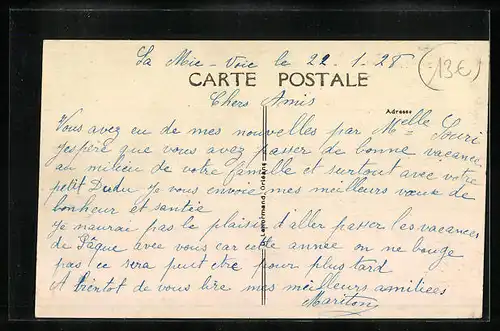 La Mie-Voie le 22-1-28
13€
CARTE POSTALE
Chers Amis
Adresse
Vous avez eu de mes nouvelles par Melle Souri
Jespère que vous avez passer de bonne vacance
au milieu de votre famille et surtout avec votre
petit Dudu Je vous envoie mes meilleurs vœux de
bonheur et santée
Je naurai pas le plaisir d'aller passer les vacances
de Pâque avec vous car cete année on ne bouge
pas ce sera peut etre pour plus tard
A bientot de vous lire mes meilleurs amitiées
Mariton